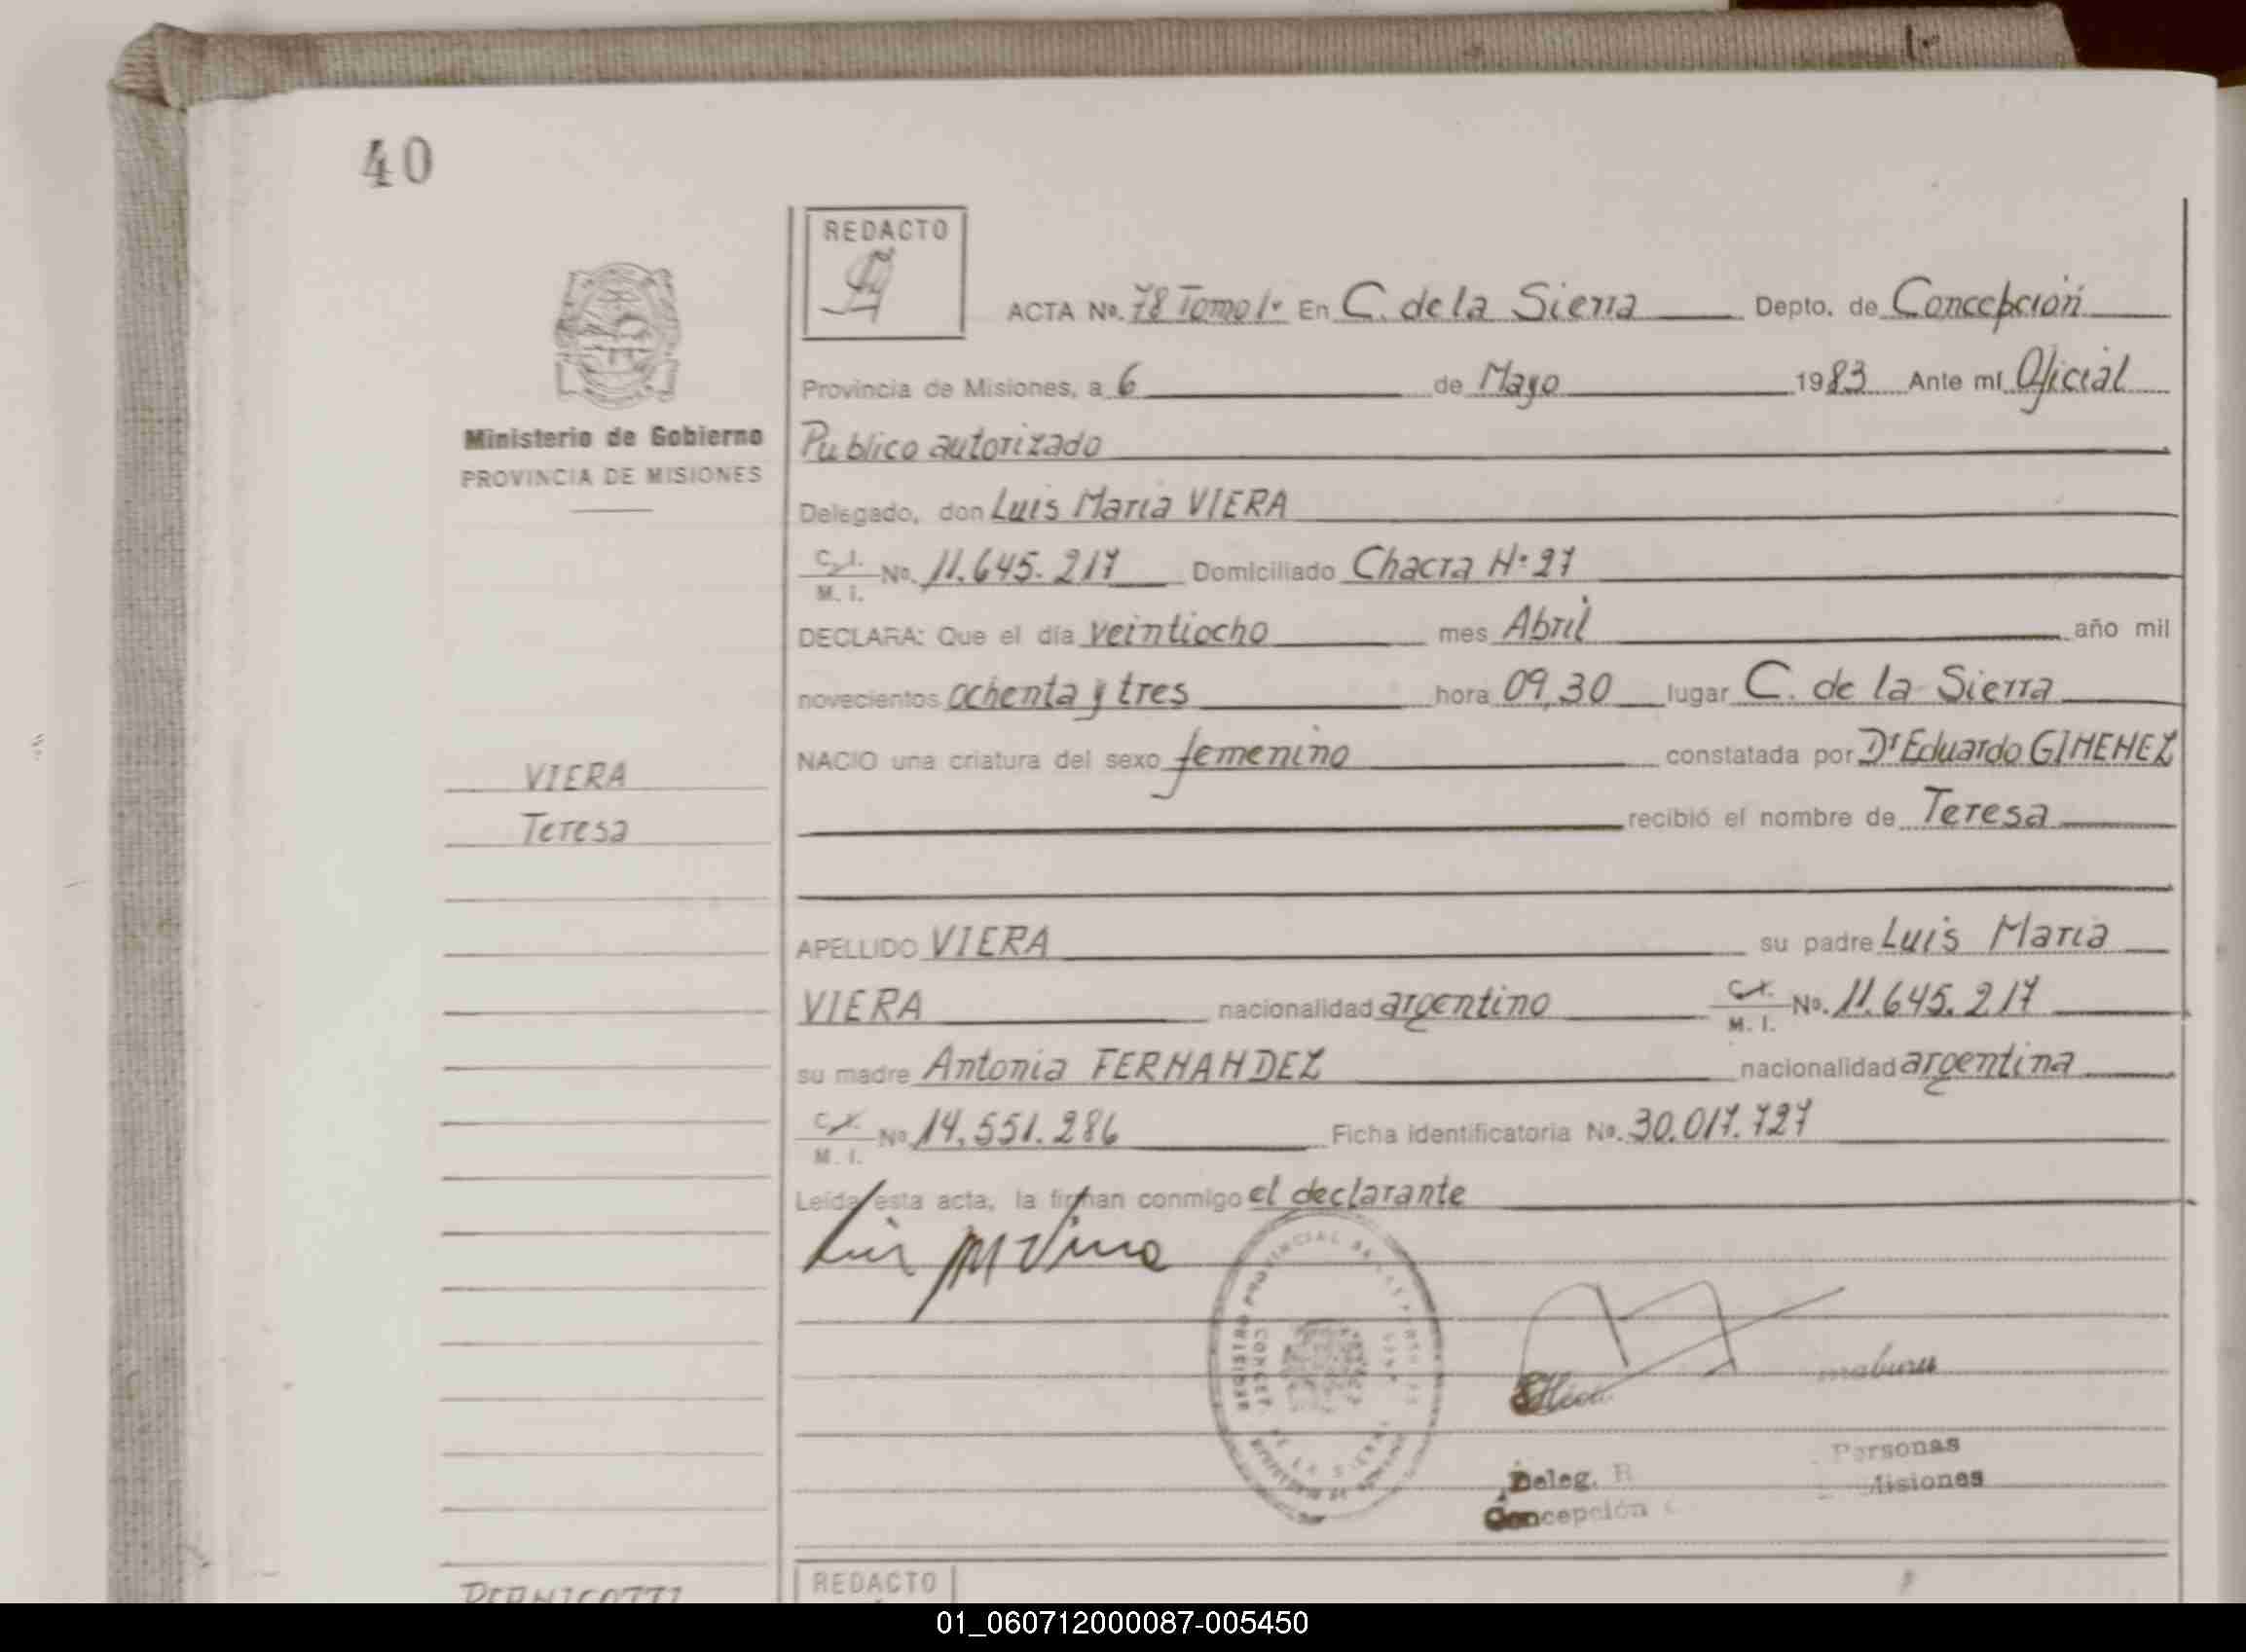 40
REDACTO
ACTA No. 78 Tomo 1º En C. de la Sierra Depto. de Concepción
Provincia de Misiones, a 6 de Mayo 1983 Ante mí Oficial
Ministerio de Gobierno
Publico autorizado
PROVINCIA DE MISIONES
Delegado, don Luis Maria VIERA
C. I.
M. I.
No. 11.645.217 Domiciliado Chacra Nº 27
DECLARA: Que el día veintiocho mes Abril año mil
novecientos ochenta y tres hora 09,30 lugar C. de la Sierra
NACIO una criatura del sexo femenino constatada por Dr Eduardo GIMENEZ
VIERA
Teresa
recibió el nombre de Teresa
APELLIDO VIERA su padre Luis Maria
VIERA nacionalidad argentino C.I. M. I. No. 11.645.217
su madre Antonia FERNANDEZ nacionalidad argentina
C.I. M. I. No 14.551.286 Ficha identificatoria No. 30.017.727
Leída esta acta, la firman conmigo el declarante
REGISTRO PROVINCIAL DE LAS PERSONAS
DE LA SIERRA
Personas
Deleg. R
Misiones
Concepción
REDACTO
01_060712000087-005450